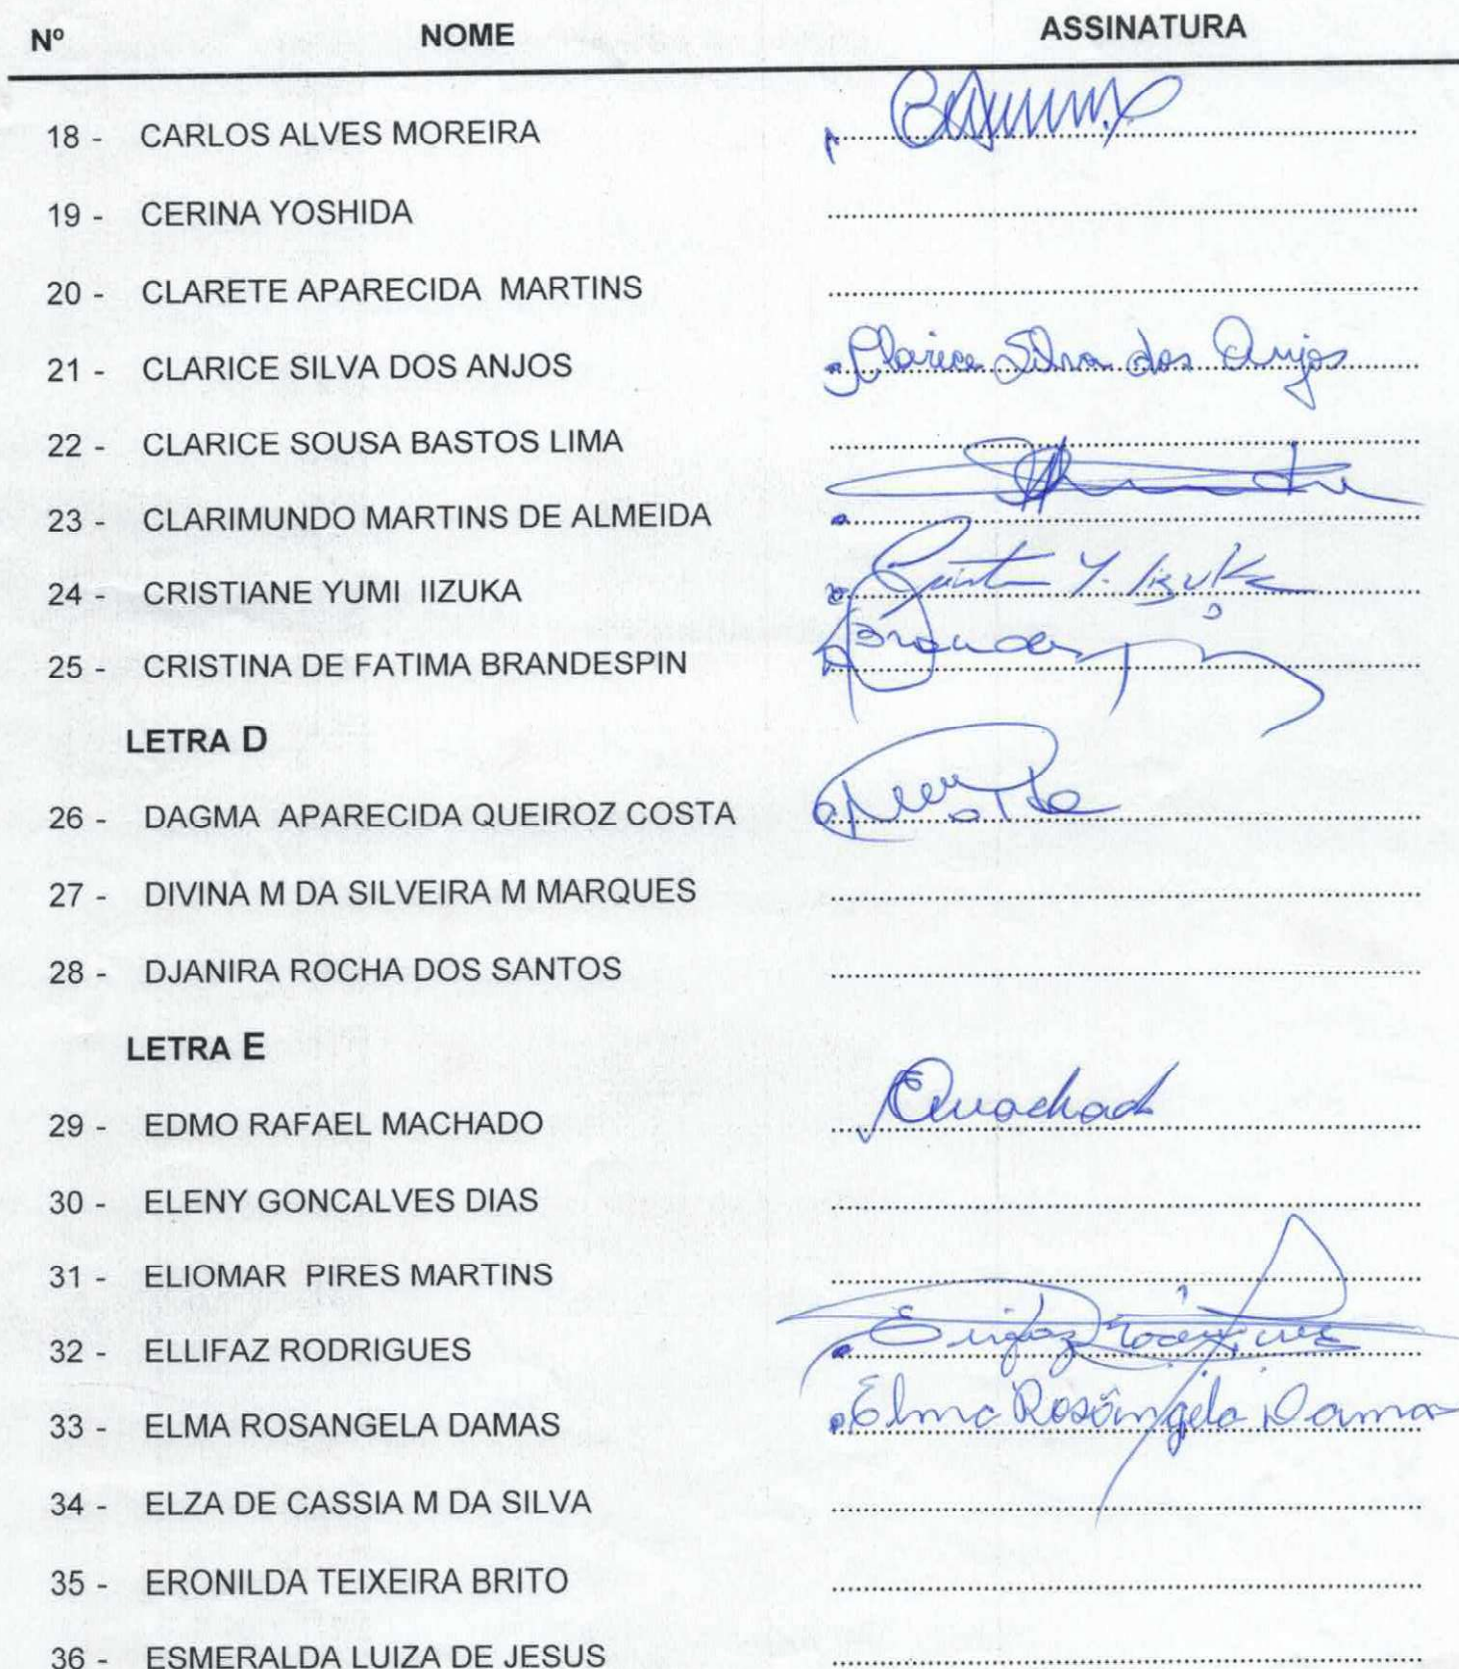 Nº NOME ASSINATURA
18 - CARLOS ALVES MOREIRA
19 - CERINA YOSHIDA
20 - CLARETE APARECIDA MARTINS
21 - CLARICE SILVA DOS ANJOS Clarice Silva dos Anjos
22 - CLARICE SOUSA BASTOS LIMA
23 - CLARIMUNDO MARTINS DE ALMEIDA
24 - CRISTIANE YUMI IIZUKA Y. Iizuka
25 - CRISTINA DE FATIMA BRANDESPIN
LETRA D
26 - DAGMA APARECIDA QUEIROZ COSTA
27 - DIVINA M DA SILVEIRA M MARQUES
28 - DJANIRA ROCHA DOS SANTOS
LETRA E
29 - EDMO RAFAEL MACHADO
30 - ELENY GONCALVES DIAS
31 - ELIOMAR PIRES MARTINS
32 - ELLIFAZ RODRIGUES
33 - ELMA ROSANGELA DAMAS Elma Rosângela Damas
34 - ELZA DE CASSIA M DA SILVA
35 - ERONILDA TEIXEIRA BRITO
36 - ESMERALDA LUIZA DE JESUS